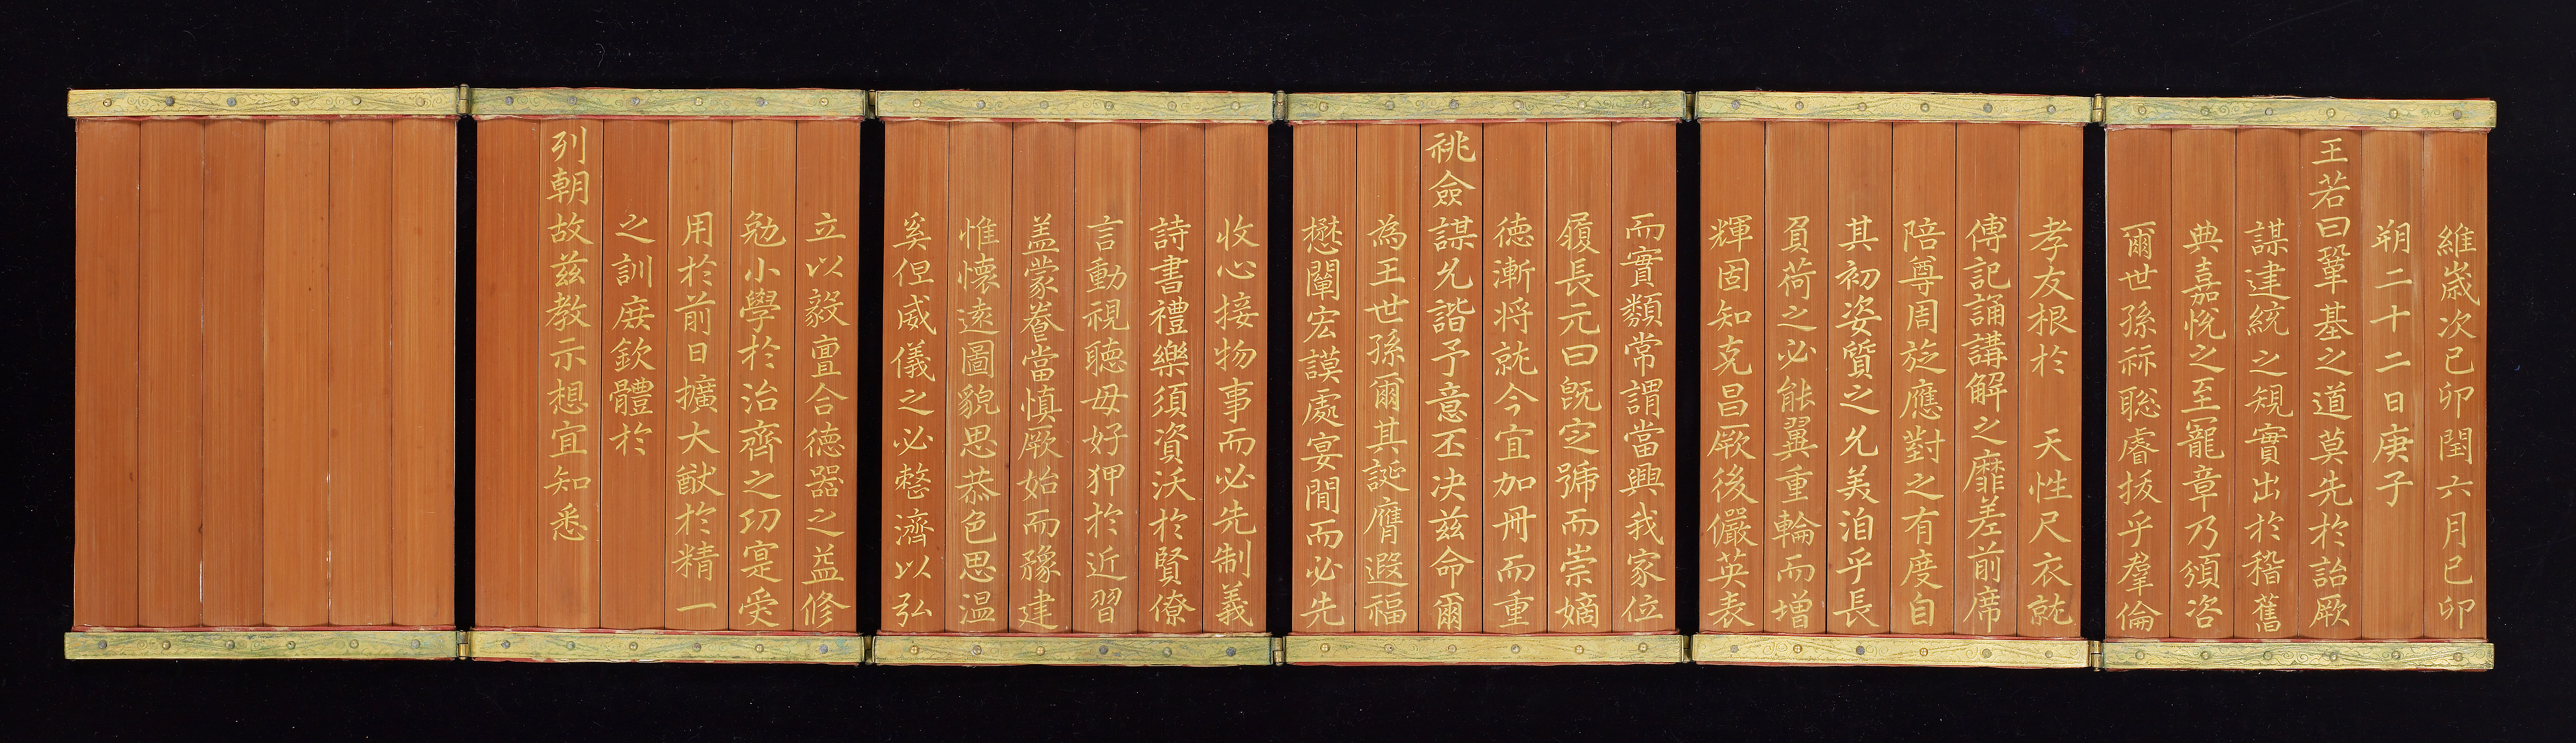 維歲次己卯閏六月己卯
朔二十二日庚子
王若曰鞏基之道莫先於詒厥
謀建統之䂓實出於稽舊
典嘉悅之至寵章乃頒咨
爾世孫祘聡睿抜乎羣倫
孝友根於 天性尺衣就
傅記誦講解之靡差前席
陪尊周旋應對之有度自
其初姿質之允美洎乎長
負荷之必能翼重輪而增
輝固知克昌厥後儼英表
而實類常謂當興我家位
履長元曰旣定號而崇嫡
德漸將就今宜加冊而重
祧僉謀允諧予意丕决兹命爾
為王世孫爾其誕膺遐福
懋闡宏謨處宴閒而必先
收心接物事而必先制義
詩書禮樂須資沃於賢僚
言動視聽毋好狎於近習
盖蒙養當慎厥始而豫建
惟懐遠圖貌思恭色思温
奚但威儀之必整濟以弘
立以毅亶合德器之益修
勉小學於治齊之㓛寔爰
用於前日擴大猷於精一
之訓庻欽體於
列朝故兹教示想宜知悉